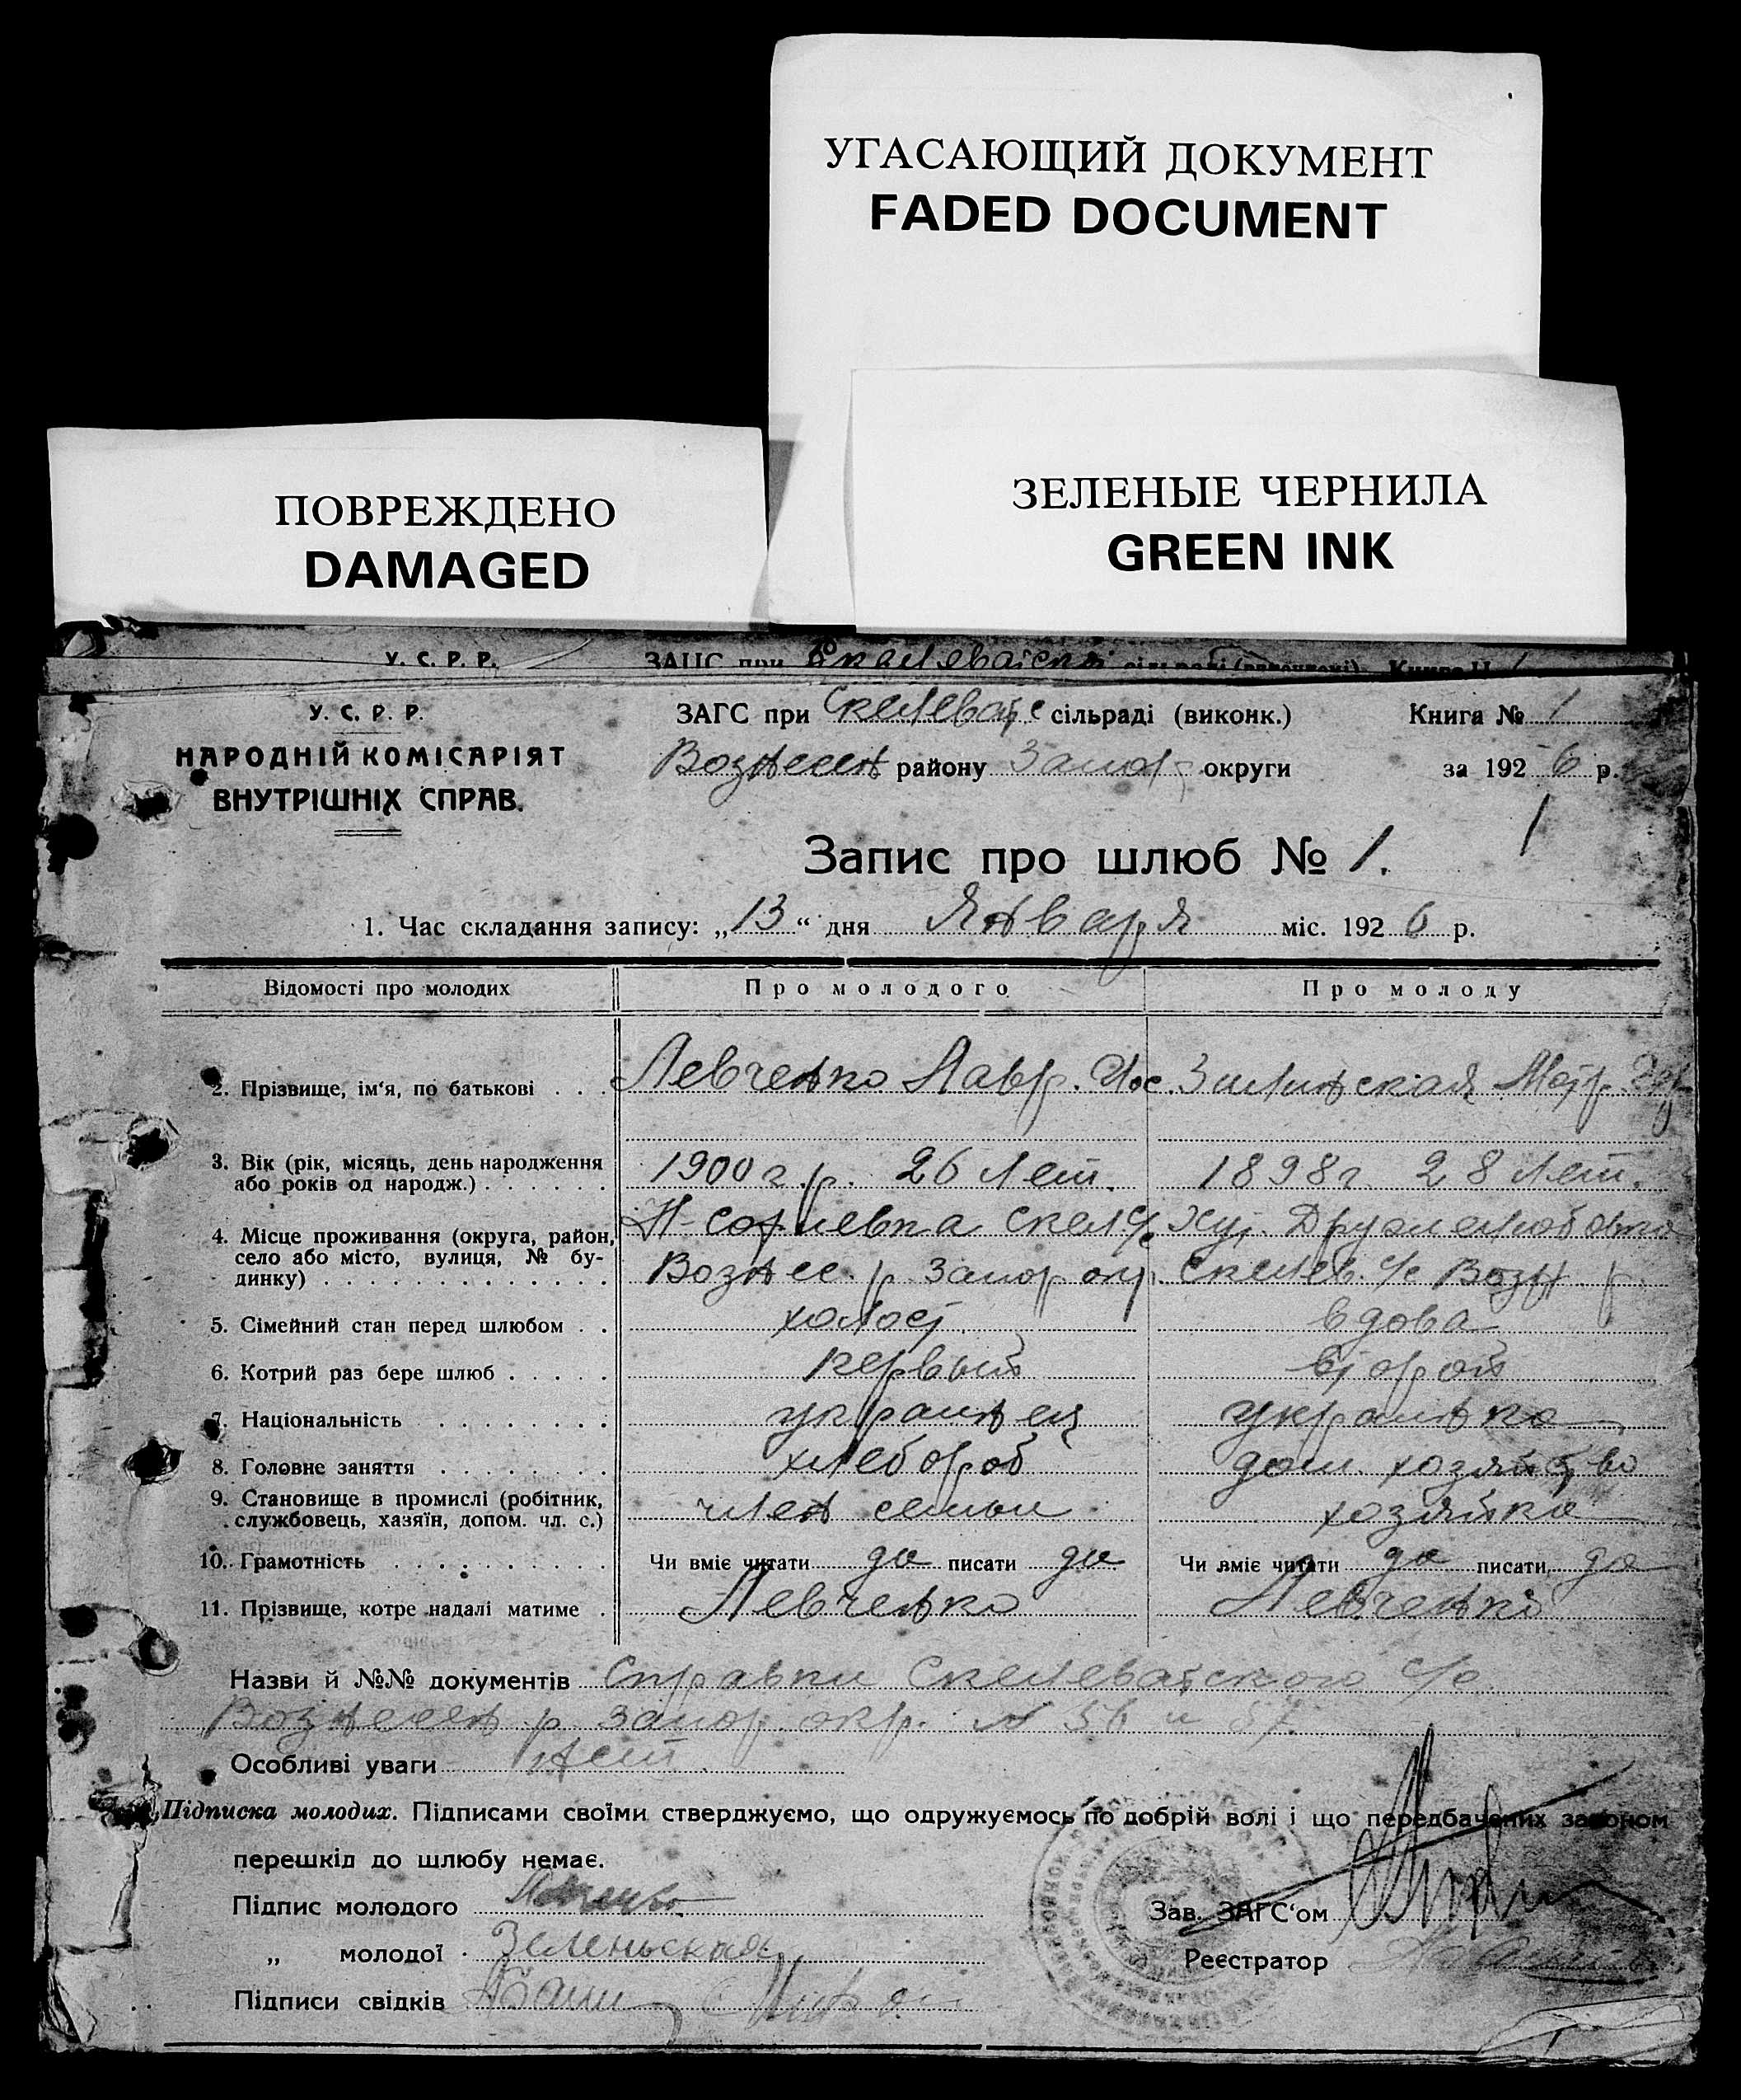 УГАСАЮЩИЙ ДОКУМЕНТ
FADED DOCUMENT
ПОВРЕЖДЕНО
DAMAGED
ЗЕЛЕНЫЕ ЧЕРНИЛА
GREEN INK
У. С. Р. Р.
У. С. Р. Р.
НАРОДНІЙ КОМІСАРІЯТ
ВНУТРІШНІХ СПРАВ.
ЗАГС при Скелеватс сільраді (виконк.) Книга № 1
Вознесен району Запор округи за 1926 р.
1
Запис про шлюб № 1.
1. Час складання запису: „13“ дня Января міс. 1926 р.
Відомості про молодих Про молодого Про молоду
2. Прізвище, ім‘я, по батькові . . . Левченко Лавр. Иос. Зилинская Мотр.
3. Вік (рік, місяць, день народження
або років од народж.) . . . . . . 1900 г. р. 26 лет. 1898 г 28 лет.
4. Місце проживання (округа, район,
село або місто, вулиця, № бу-
динку) . . . . . . . . . . . . .
Н-Софиевка Скел с/с Хут. Дружелюбовка
Вознес. р. Запор окр. Скелев. с/с Возн р.
5. Сімейний стан перед шлюбом . . холост вдова
6. Котрий раз бере шлюб . . . . . первый второй
7. Національність . . . . . . . . украинец украинка
8. Головне заняття . . . . . . . . хлебороб дом. хозяйство
9. Становище в промислі (робітник,
службовець, хазяїн, допом. чл. с.) член семьи хозяйка
10. Грамотність . . . . . . . . . . Чи вміє читати да писати да Чи вміє читати да писати да
11. Прізвище, котре надалі матиме . Левченко Левченко
Назви й №№ документів Справки Скелеватского с/с
Вознесен р Запор. окр. № 56 и 57
Особливі уваги нет
Підписка молодих. Підписами своїми стверджуємо, що одружуємось по добрій волі і що передбачених законом
перешкід до шлюбу немає.
Підпис молодого Левченко
„ молодої Зеленьская
Підписи свідків
Зав. ЗАГС‘ом
Реєстратор